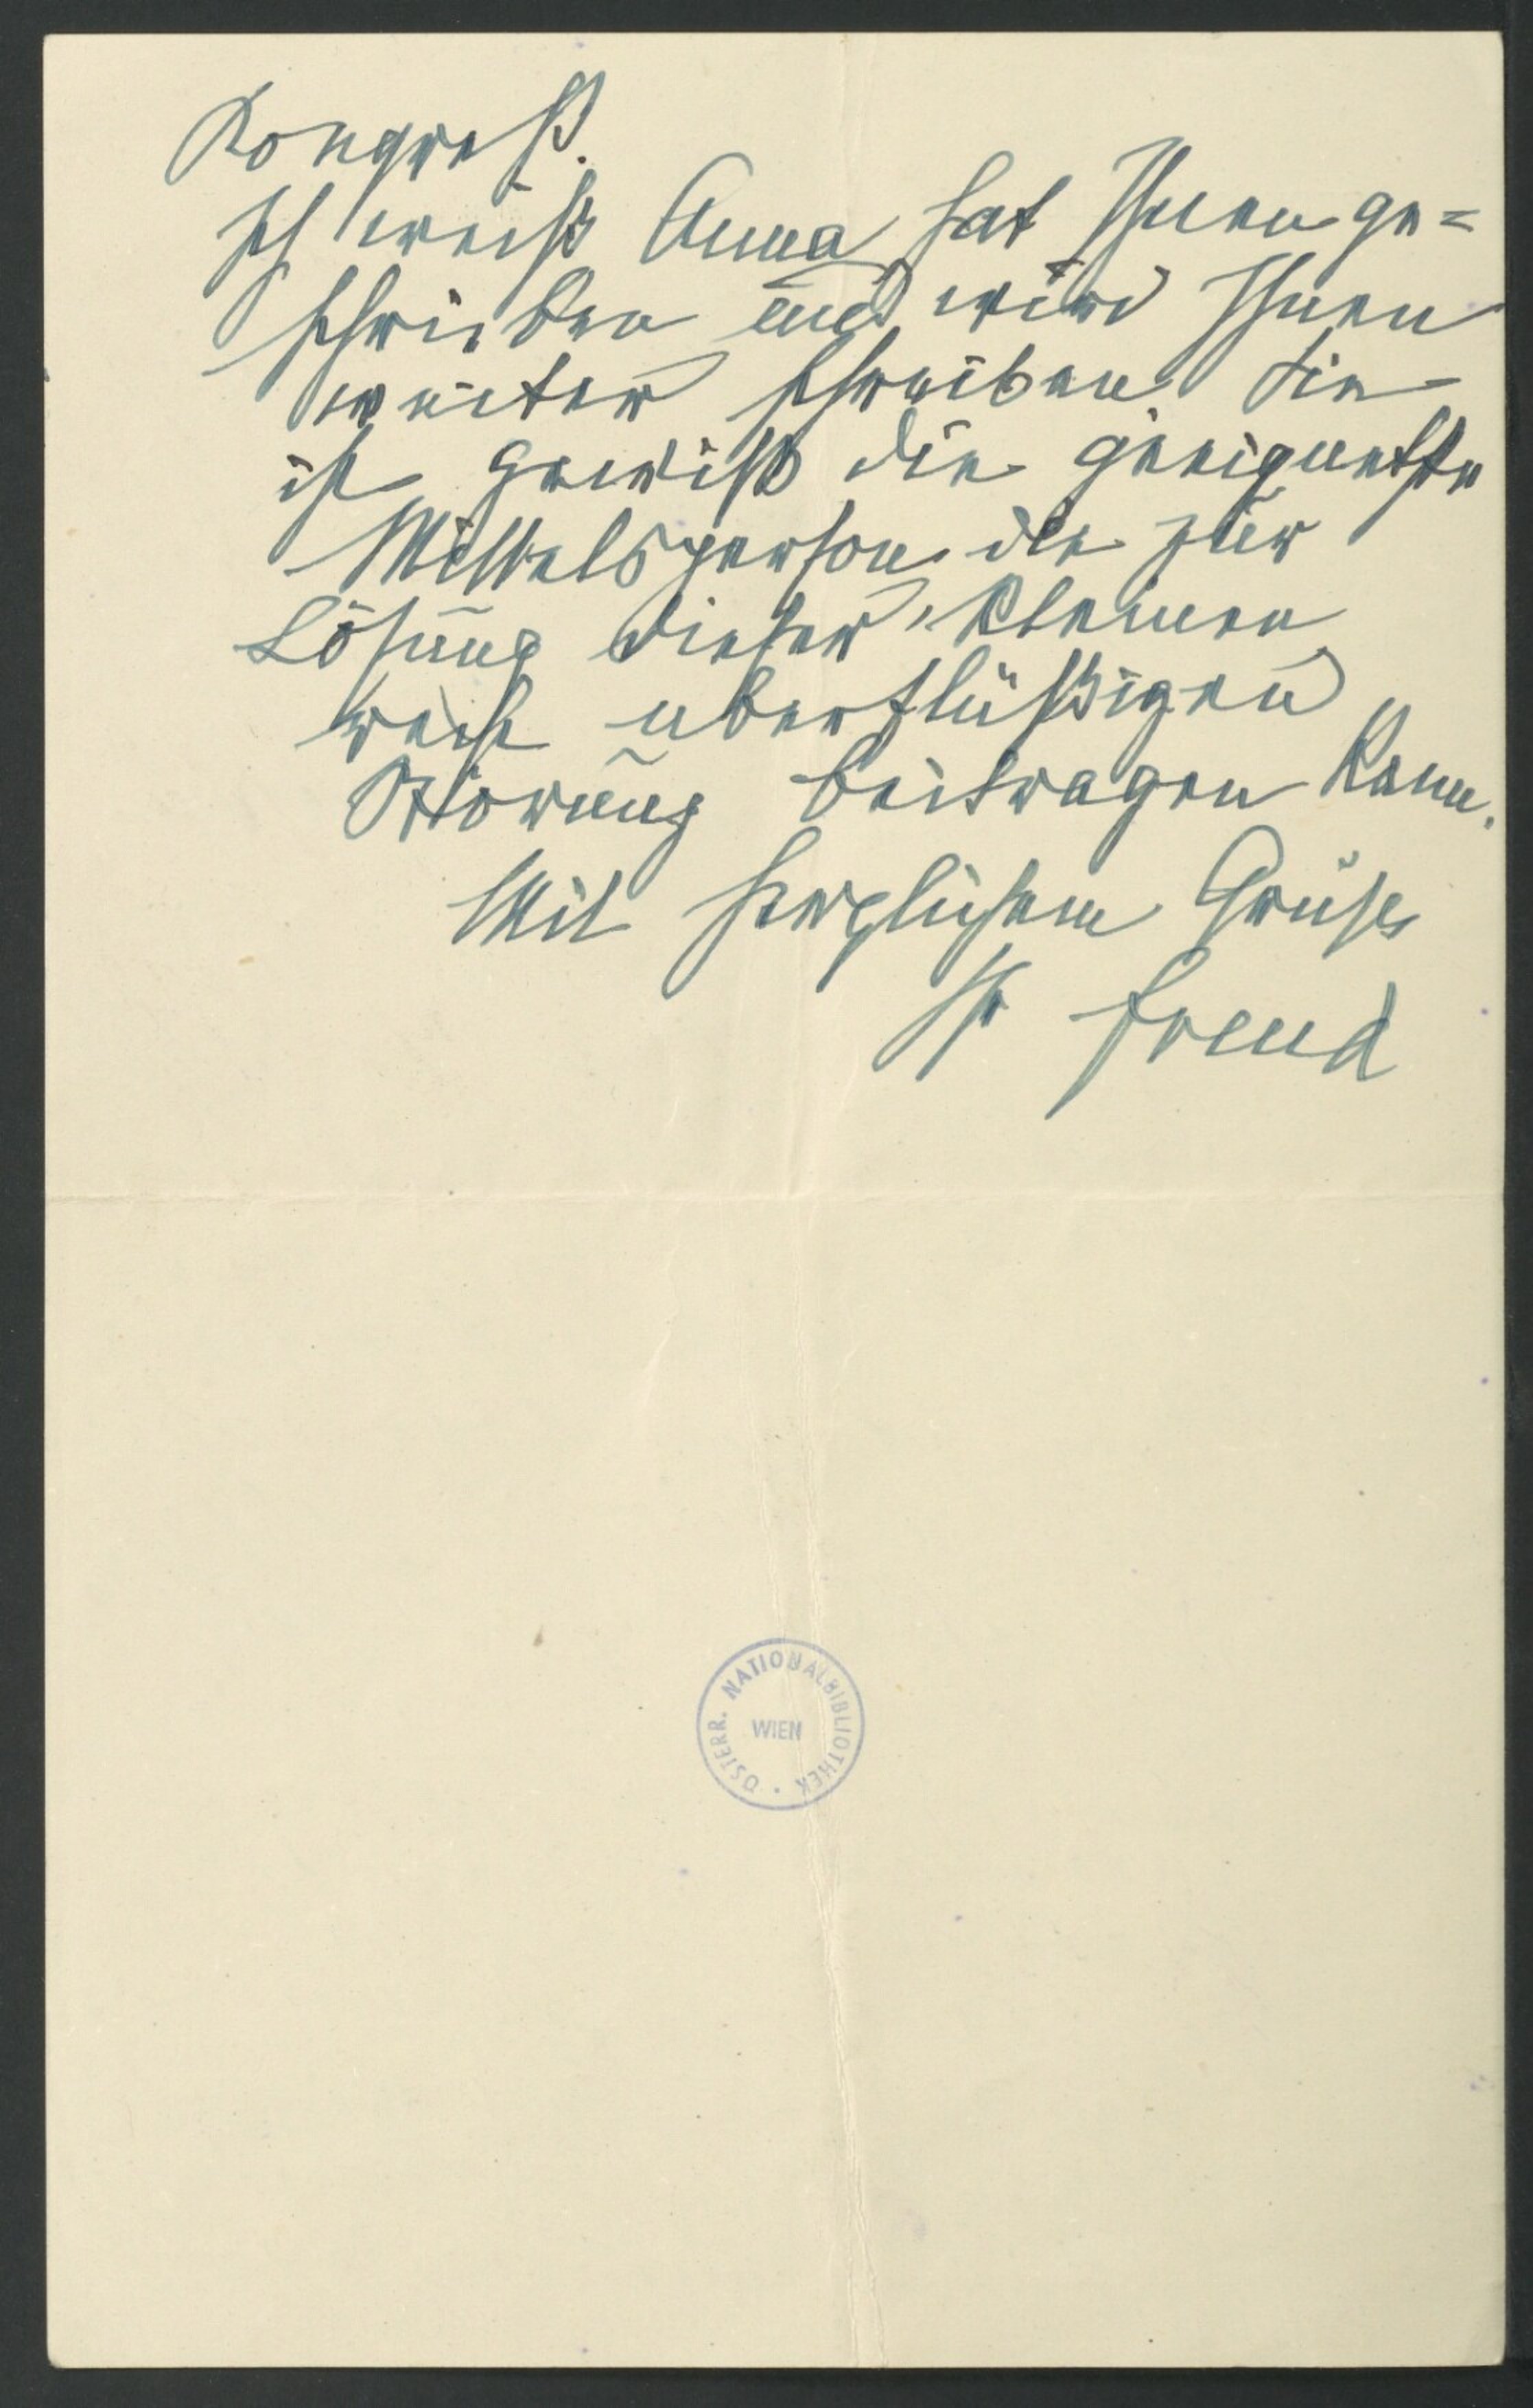 Kongreß.
Ich weiß Anna hat Ihnen ge=
schrieben und wird Ihnen
weiter schreiben. Sie
ist gewiß die geeignetste
Mittelsperson die zur
Lösung dieser kleinen
überflüßigen
Störung beitragen kann.
Mit herzlichem Gruß
Ihr Freud
ÖSTERR. NATIONALBIBLIOTHEK
WIEN